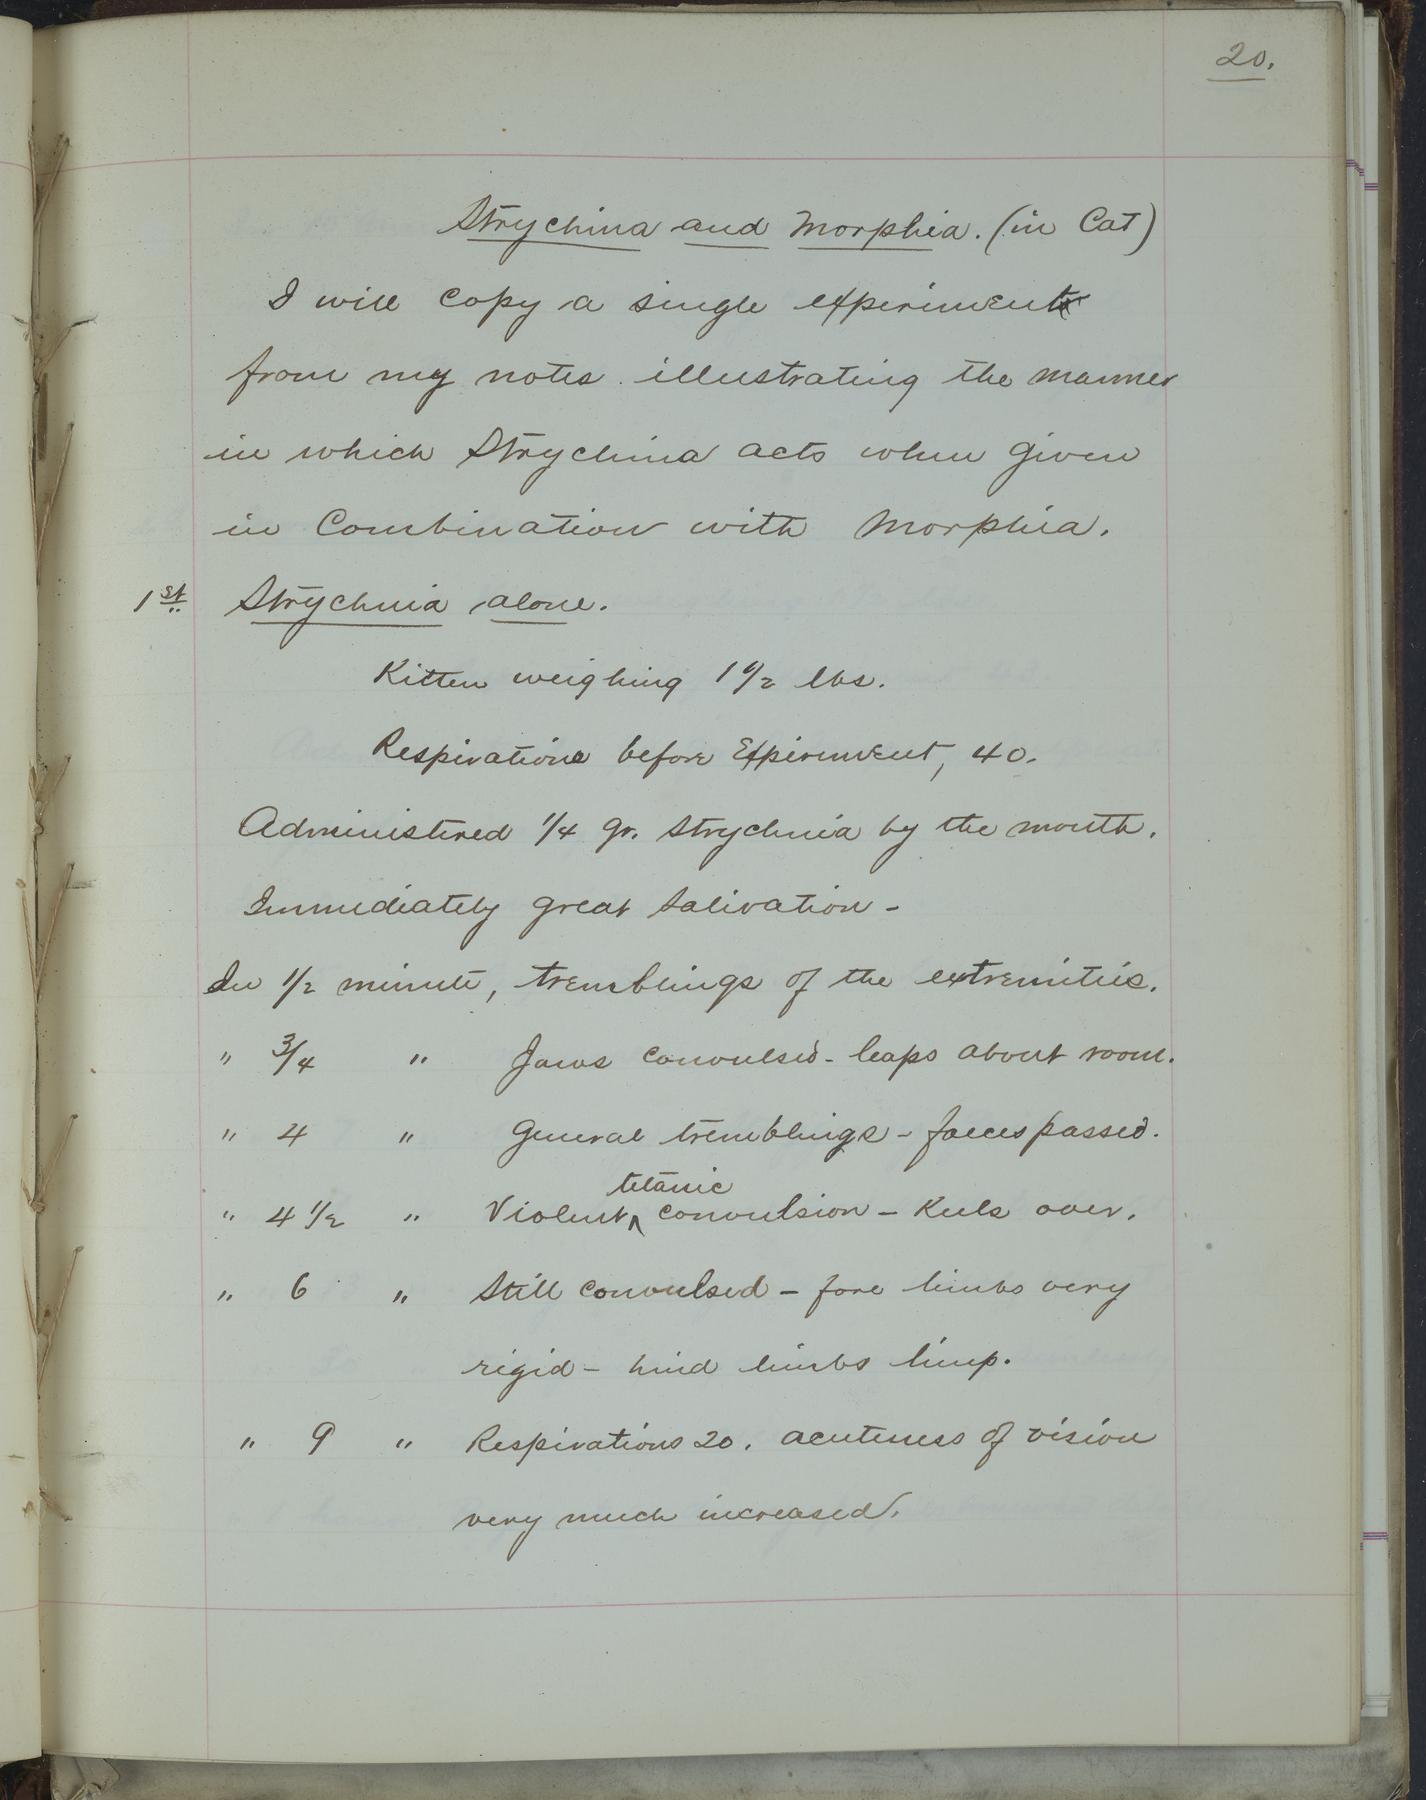 20.
Strychnia and Morphia. (in Cat)
I will copy a single experiment
from my notes illustrating the manner
in which Strychnia acts when given
in Combination with Morphia.
1st Strychnia alone.
Kitten weighing 1 1/2 lbs.
Respirations before Experiment, 40.
Administered 1/4 gr. Strychnia by the mouth.
Immediately great Salivation -
In 1/2 minute, tremblings of the extremities.
" 3/4 " Jaws convulsed - leaps about room.
" 4 " General tremblings - faeces passed.
tetanic
" 4 1/2 " Violent ^ convulsion - Keels over.
" 6 " Still convulsed - fore limbs very
rigid - hind limbs limp.
" 9 " Respirations 20. acuteness of vision
very much increased.